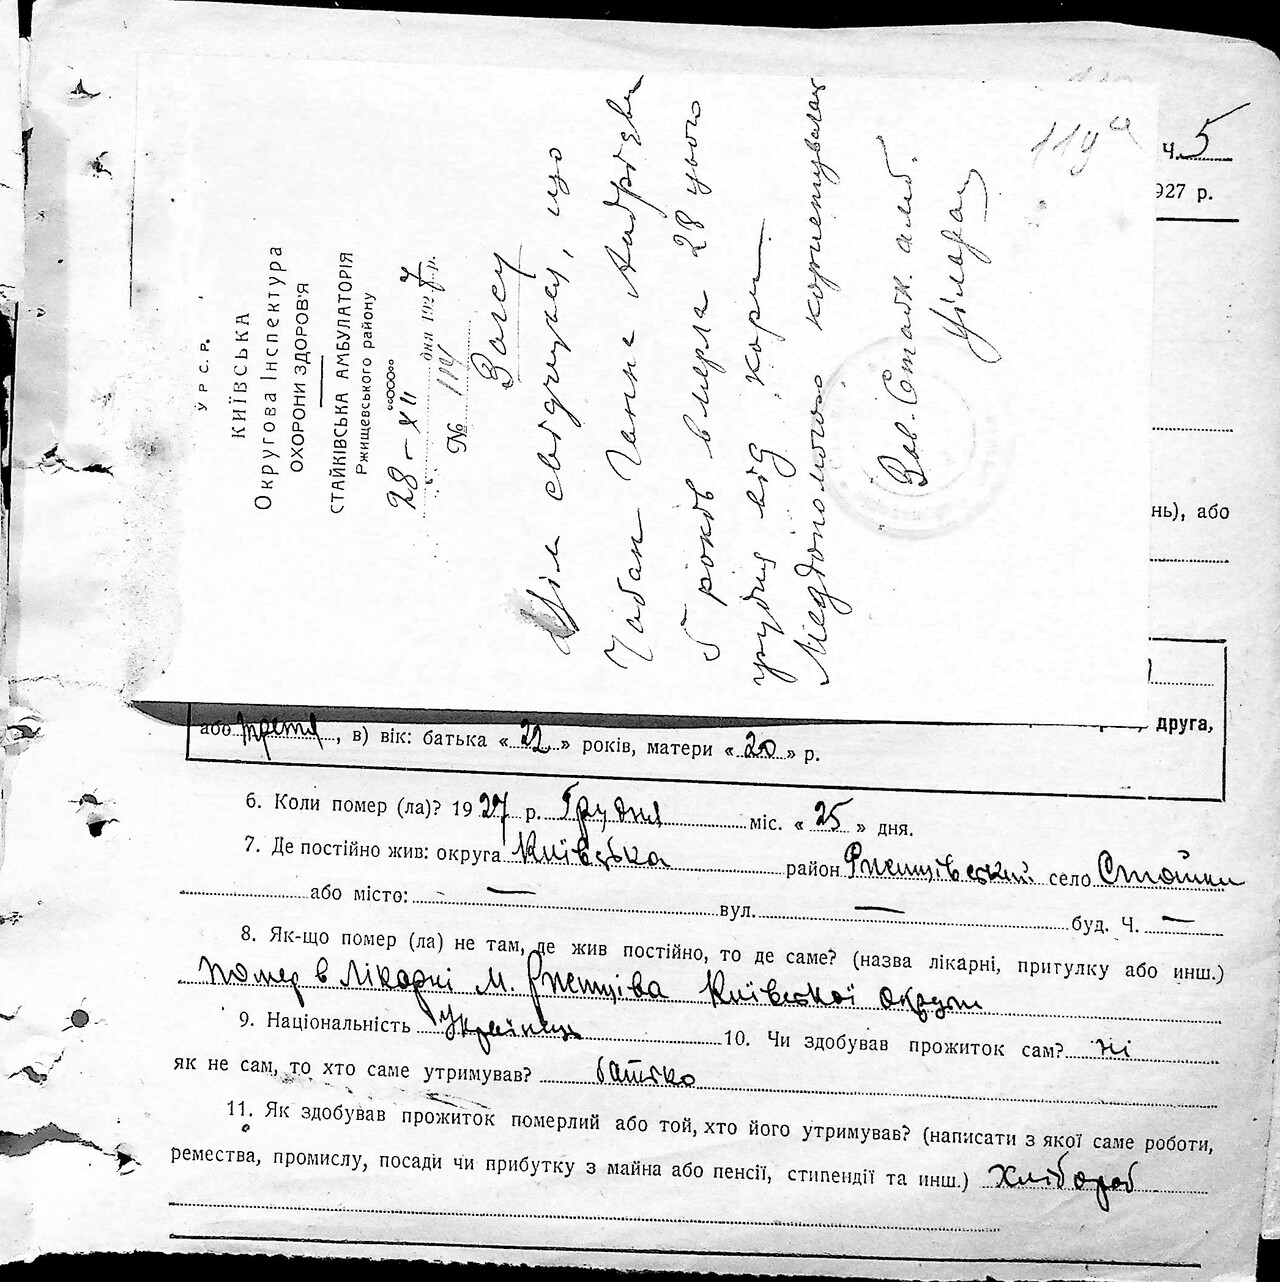 У Р С Р.
КИЇВСЬКА
Округова Інспектура
ОХОРОНИ ЗДОРОВ'Я
СТАЙКІВСЬКА АМБУЛАТОРІЯ
Ржищевського району
28 – XII дня 1927 р.
№
Загсу
Цім свідчу, що
Чабан Ганна Андрієвн
5 років вмерла 28 цього
грудня від кори.
Меддопомогою користувалась
Зав. Стайк. амб.
119
Ч. 5
927 р.
нь), або
друга,
або третя, в) вік: батька «22» років, матери «20» р.
6. Коли помер (ла)? 1927 р. Грудня міс. «25» дня.
7. Де постійно жив: округа Київська район Ржищівський село Стайки
або місто: — вул. — буд. Ч. —
8. Як-що помер (ла) не там, де жив постійно, то де саме? (назва лікарні, притулку або инш.)
помер в лікарні м. Ржищіва Київської округи
9. Національність Українець 10. Чи здобував прожиток сам? ні
як не сам, то хто саме утримував? батько
11. Як здобував прожиток померлий або той, хто його утримував? (написати з якої саме роботи,
ремества, промислу, посади чи прибутку з майна або пенсії, стипендії та инш.) хлібороб